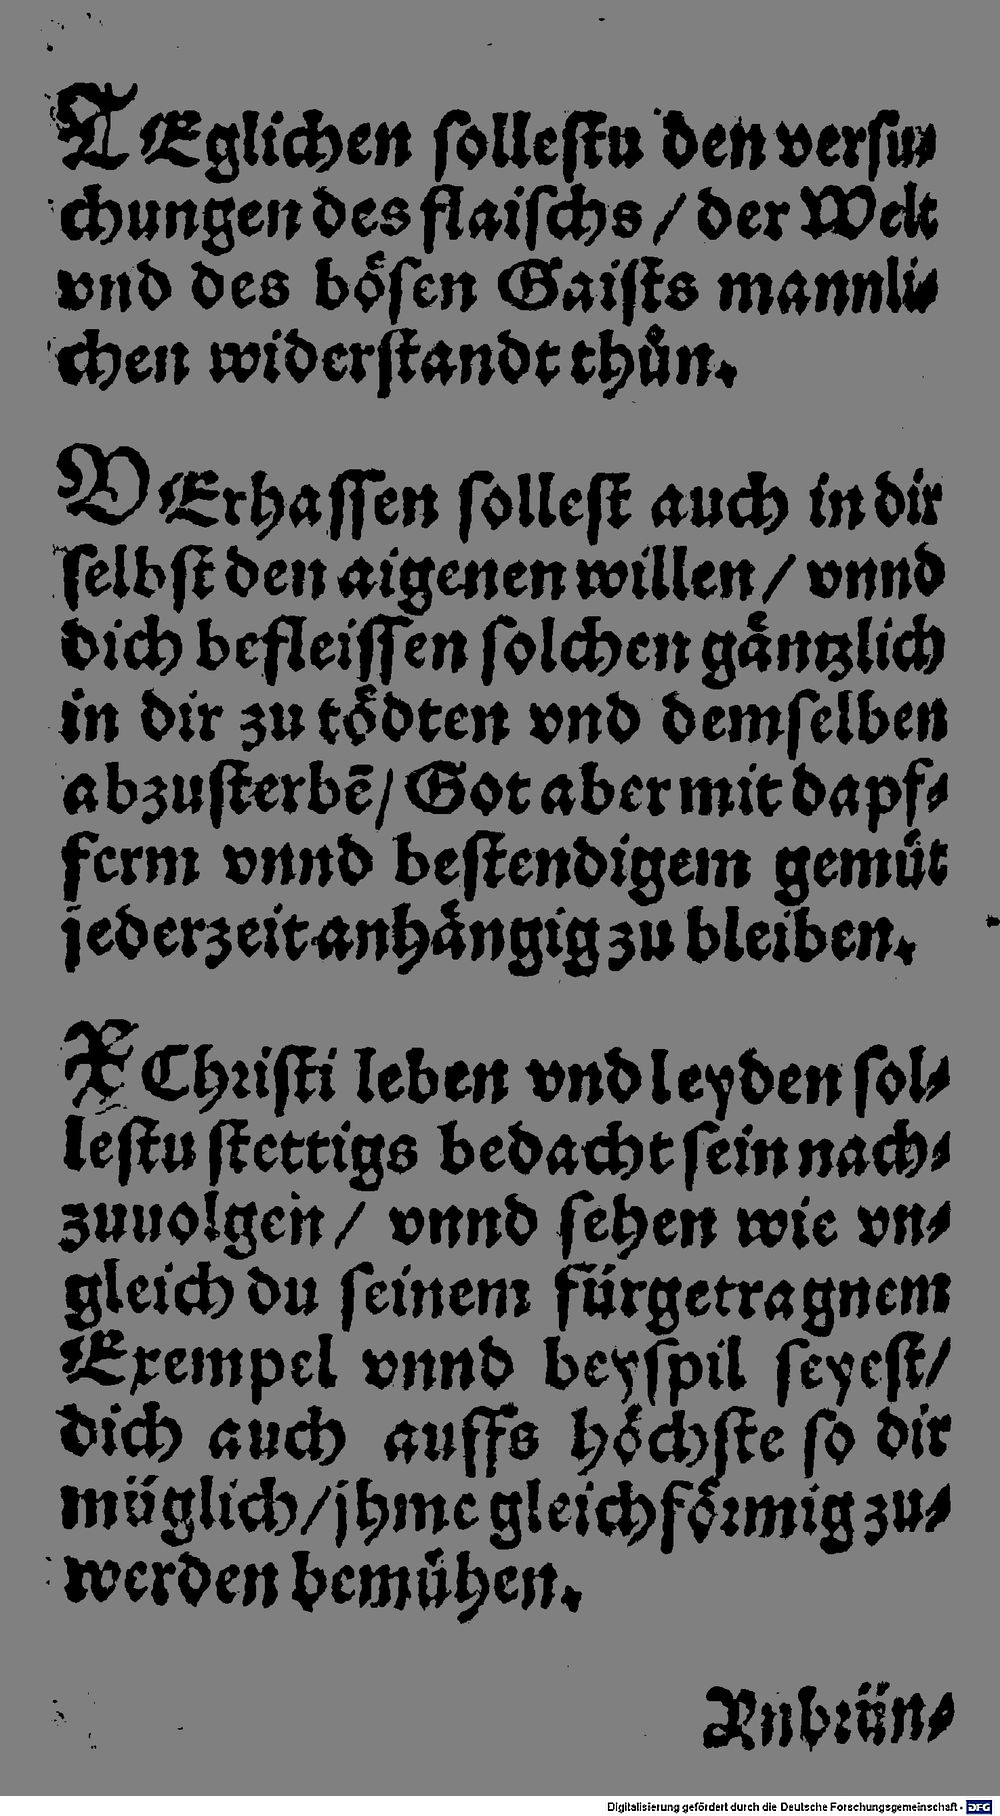 TEglichen sollestu den versu-
chungen des flaischs / der Welt
vnd des bösen Gaists mannli-
chen widerstandt thůn.
VErhassen sollest auch in dir
selbst den aigenen willen / vnnd
dich befleissen solchen gäntzlich
in dir zu tödten vnd demselben
abzusterbē / Got aber mit dapf-
ferm vnnd bestendigem gemüt
jederzeit anhängig zu bleiben.
X Christi leben vnd leyden sol-
lestu stettigs bedacht sein nach-
zuuolgen / vnnd sehen wie vn-
gleich du seinem fürgetragnem
Exempel vnnd beyspil seyest /
dich auch auffs höchste so dir
müglich / jhme gleichförmig zu-
werden bemühen.
Digitalisierung gefördert durch die Deutsche Forschungsgemeinschaft - DFG